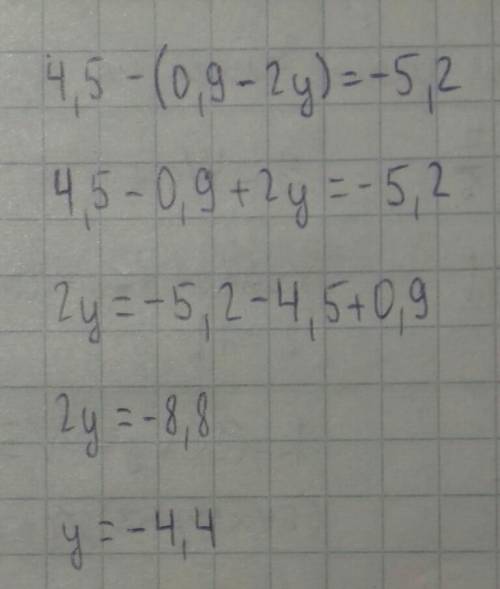 4,5 - (0,9 - 2y) = -5,2
4,5 - 0,9 + 2y = -5,2
2y = -5,2 - 4,5 + 0,9
2y = -8,8
y = -4,4